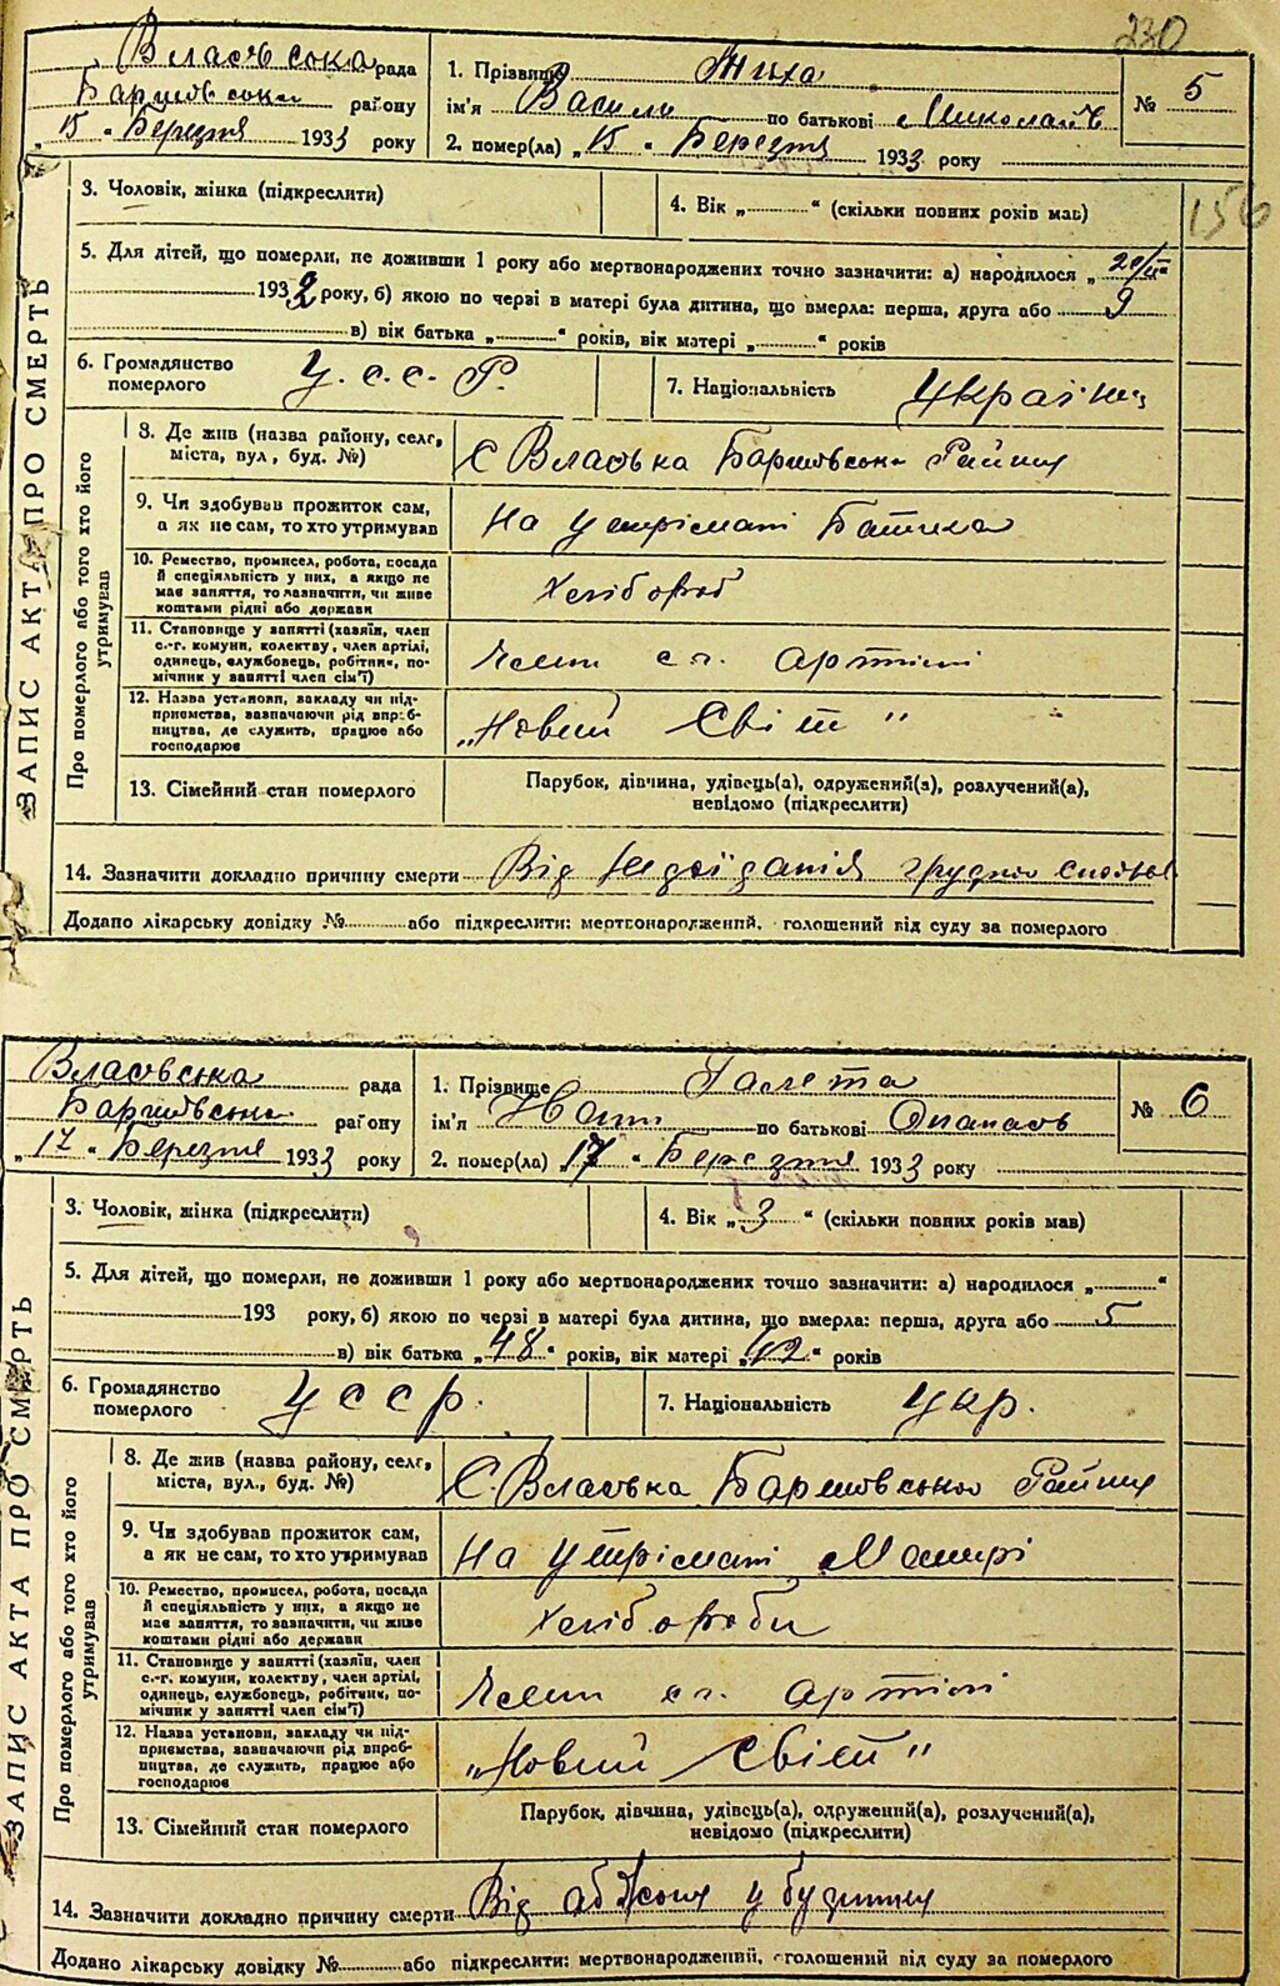 230
Власівська рада
Баришівськи району
„15“ Березня 1933 року
1. Прізвище Тиха
ім'я Василь по батькові Миколаїв
2. помер(ла) „15“ Березня 1933 року
№ 5
156
ЗАПИС АКТА ПРО СМЕРТЬ
3. Чоловік, жінка (підкреслити)
4. Вік „ “ (скільки повних років мав)
5. Для дітей, що померли, не доживши 1 року або мертвонароджених точно зазначити: а) народилося „
1932 року, б) якою по черзі в матері була дитина, що вмерла: перша, друга або 9
в) вік батька „ “ років, вік матері „ “ років
6. Громадянство
померлого
У.С.С.Р.
7. Національність
Про померлого або того хто його
утримував
8. Де жив (назва району, село,
міста, вул, буд. №)
С Власівка Район
9. Чи здобував прожиток сам,
а як не сам, то хто утримував
На утрімані Батька
10. Ремество, промисел, робота, посада
й спеціяльність у них, а якщо не
має заняття, то зазначити, чи живе
коштами рідні або держави
Хлібороб
11. Становище у занятті (хазяїн, член
с.-г. комуни, колективу, член артілі,
одинець, службовець, робітник, по-
мічник у занятті член сім'ї)
Член с г. артілі
12. Назва установи, закладу чи під-
приємства, зазначаючи рід вироб-
ництва, де служить, працює або
господарює
„Новий Світ“
13. Сімейний стан померлого
Парубок, дівчина, удівець(а), одружений(а), розлучений(а),
невідомо (підкреслити)
14. Зазначити докладно причину смерти Від недоїданія
Додано лікарську довідку № або підкреслити: мертвонароджений, оголошений від суду за померлого
Власівська рада
Баришівськи району
„17“ Березня 1933 року
1. Прізвище Галета
ім'я по батькові Опанасів
2. помер(ла) „17“ Березня 1933 року
№ 6
ЗАПИС АКТА ПРО СМЕРТЬ
3. Чоловік, жінка (підкреслити)
4. Вік „3“ (скільки повних років мав)
5. Для дітей, що померли, не доживши 1 року або мертвонароджених точно зазначити: а) народилося „ “
193 року, б) якою по черзі в матері була дитина, що вмерла: перша, друга або 5
в) вік батька „48“ років, вік матері „42“ років
6. Громадянство
померлого
УССР.
7. Національність укр.
Про померлого або того хто його
утримував
8. Де жив (назва району, село,
міста, вул., буд. №)
С. Власівка Район
9. Чи здобував прожиток сам,
а як не сам, то хто утримував
На утрімані Матирі
10. Ремество, промисел, робота, посада
й спеціяльність у них, а якщо не
має заняття, то зазначити, чи живе
коштами рідні або держави
Хлібороби
11. Становище у занятті (хазяїн, член
с.-г. комуни, колективу, член артілі,
одинець, службовець, робітник, по-
мічник у занятті член сім'ї)
Член с г. артілі
12. Назва установи, закладу чи під-
приємства, зазначаючи рід вироб-
ництва, де служить, працює або
господарює
„Новий Світ“
13. Сімейний стан померлого
Парубок, дівчина, удівець(а), одружений(а), розлучений(а),
невідомо (підкреслити)
14. Зазначити докладно причину смерти Від
Додано лікарську довідку № або підкреслити: мертвонароджений, оголошений від суду за померлого